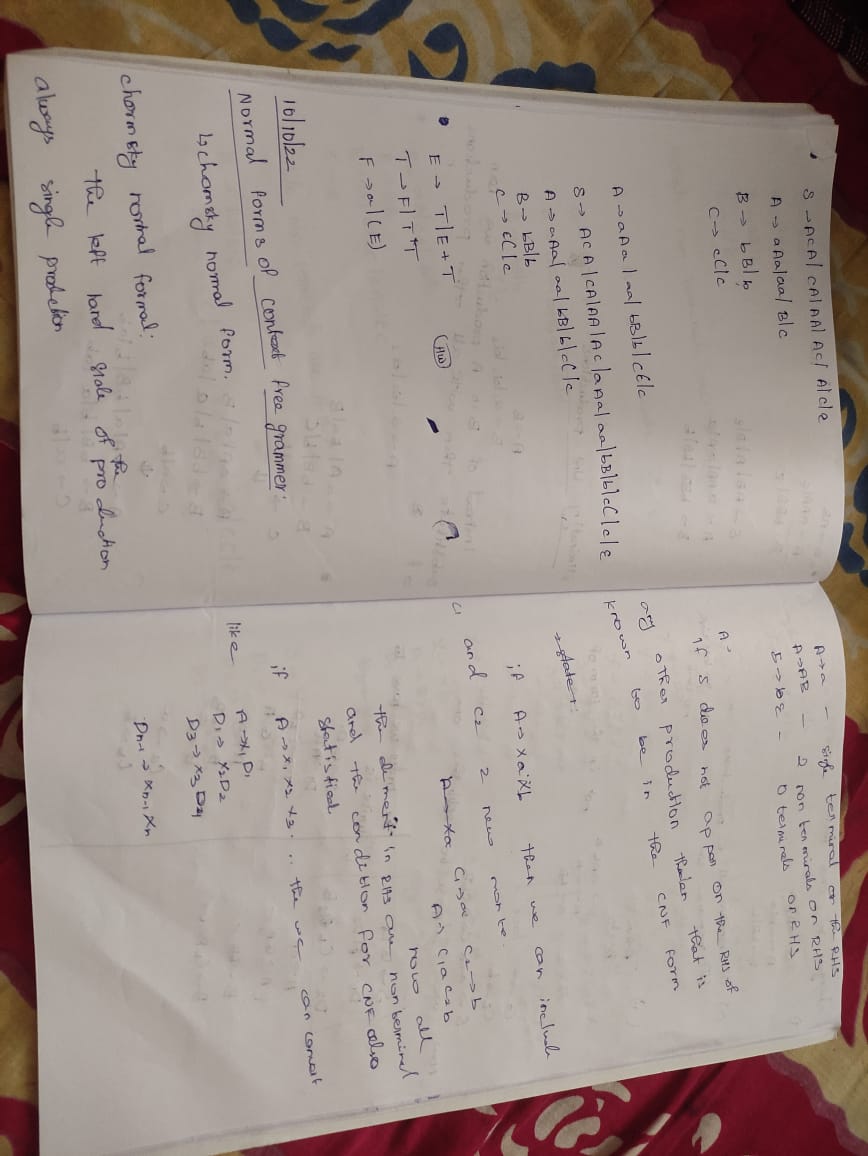 S → ACA | CA | AA | AC | A | C | ε
A → aAa | aa | B | C
B → bB | b
C → cC | c
A → aAa | aa | bB | b | cC | c
S → ACA | CA | AA | AC | aAa | aa | bB | b | cC | c | ε
A → aAa | aa | bB | b | cC | c
B → bB | b
C → cC | c
E → T | E + T (HW)
T → F | T * T
F → a | (E)
10/10/22
Normal forms of context free grammer:
↳ chomsky normal form.
chormsky normal formal:
the left hand side of the production
always single production
A → a - single terminal on the RHS
A → AB - 2 non terminals on RHS
S → bε - 0 terminals on RHS
A →
if S does not appear on the RHS of
any other production that is
known to be in the CNF form
→ state 1:
if A → xaxb then we can include
C1 and C2 2 new non te.
C1→a C2→b
A → C1aC2b
now all
the element in RHS are non terminal
and the condition for CNF also
statisfied
if A → x1 x2 x3 .. the we can convert
like A → x1D1
D1 → x2D2
D3 → x3D4
Dn-1 → xn-1 xn